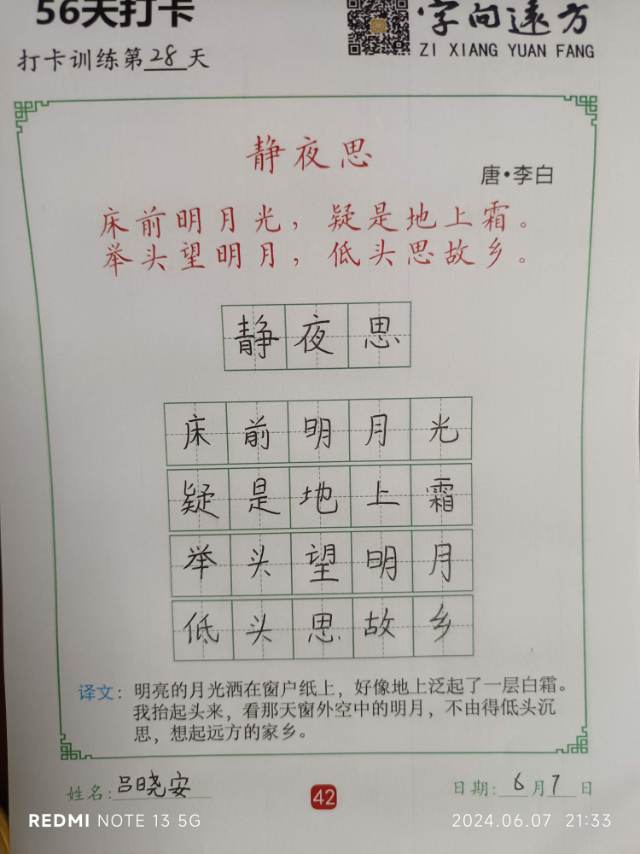 56天打卡
字向远方
ZI XIANG YUAN FANG
打卡训练第28天
静夜思
唐·李白
床前明月光，疑是地上霜。
举头望明月，低头思故乡。
静夜思
床前明月光
疑是地上霜
举头望明月
低头思故乡
译文：明亮的月光洒在窗户纸上，好像地上泛起了一层白霜。
我抬起头来，看那天窗外空中的明月，不由得低头沉
思，想起远方的家乡。
姓名：吕晓安
42
日期：6月7日
REDMI NOTE 13 5G
2024.06.07 21:33